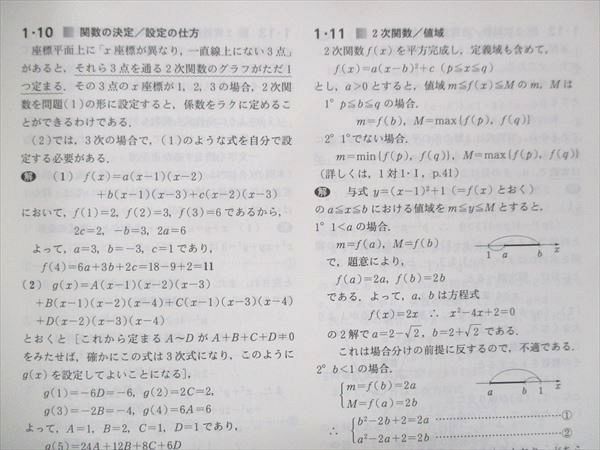 1・10 ■ 関数の決定／設定の仕方
座標平面上に「x座標が異なり，一直線上にない3点」
があると，それら3点を通る2次関数のグラフがただ1
つ定まる．その3点のx座標が1，2，3の場合，2次関
数を問題(1)の形に設定すると，係数をラクに定めるこ
とができるわけである．
(2)では，3次の場合で，(1)のような式を自分で設
定する必要がある．
解 (1) f(x)=a(x-1)(x-2)
+b(x-1)(x-3)+c(x-2)(x-3)
において，f(1)=2，f(2)=3，f(3)=6であるから，
2c=2，-b=3，2a=6
よって，a=3，b=-3，c=1であり，
f(4)=6a+3b+2c=18-9+2=11
(2) g(x)=A(x-1)(x-2)(x-3)
+B(x-1)(x-2)(x-4)+C(x-1)(x-3)(x-4)
+D(x-2)(x-3)(x-4)
とおくと［これから定まるA〜DがA+B+C+D≠0
をみたせば，確かにこの式は3次式になり，このように
g(x)を設定してよいことになる］，
g(1)=-6D=-6，g(2)=2C=2，
g(3)=-2B=-4，g(4)=6A=6
よって，A=1，B=2，C=1，D=1であり，
g(5)=24A+12B+8C+6D
1・11 ■ 2次関数／値域
2次関数f(x)を平方完成し，定義域も含めて，
f(x)=a(x-b)²+c (p≦x≦q)
とし，a>0とすると，値域m≦f(x)≦Mのm，Mは
1° p≦b≦qの場合．
m=f(b)，M=max{f(p)，f(q)}
2° 1°でない場合．
m=min{f(p)，f(q)}，M=max{f(p)，f(q)}
(詳しくは，1対1・I，p.41)
解 与式y=(x-1)²+1 (=f(x)とおく)
のa≦x≦bにおける値域をm≦y≦Mとすると，
1° 1<aの場合．
m=f(a)，M=f(b)
で，題意により，
f(a)=2a，f(b)=2b
1 a b x
である．よって，a，bは方程式
f(x)=2x ∴ x²-4x+2=0
の2解でa=2-√2，b=2+√2である．
これは場合分けの前提に反するので，不適である．
2° b<1の場合．
{m=f(b)=2a
M=f(a)=2b
a b 1 x
∴ {b²-2b+2=2a ……①
a²-2a+2=2b ……②